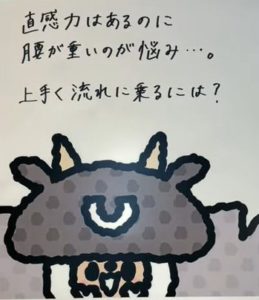 直感力はあるのに
腰が重いのが悩み…。
上手く流れに乗るには？